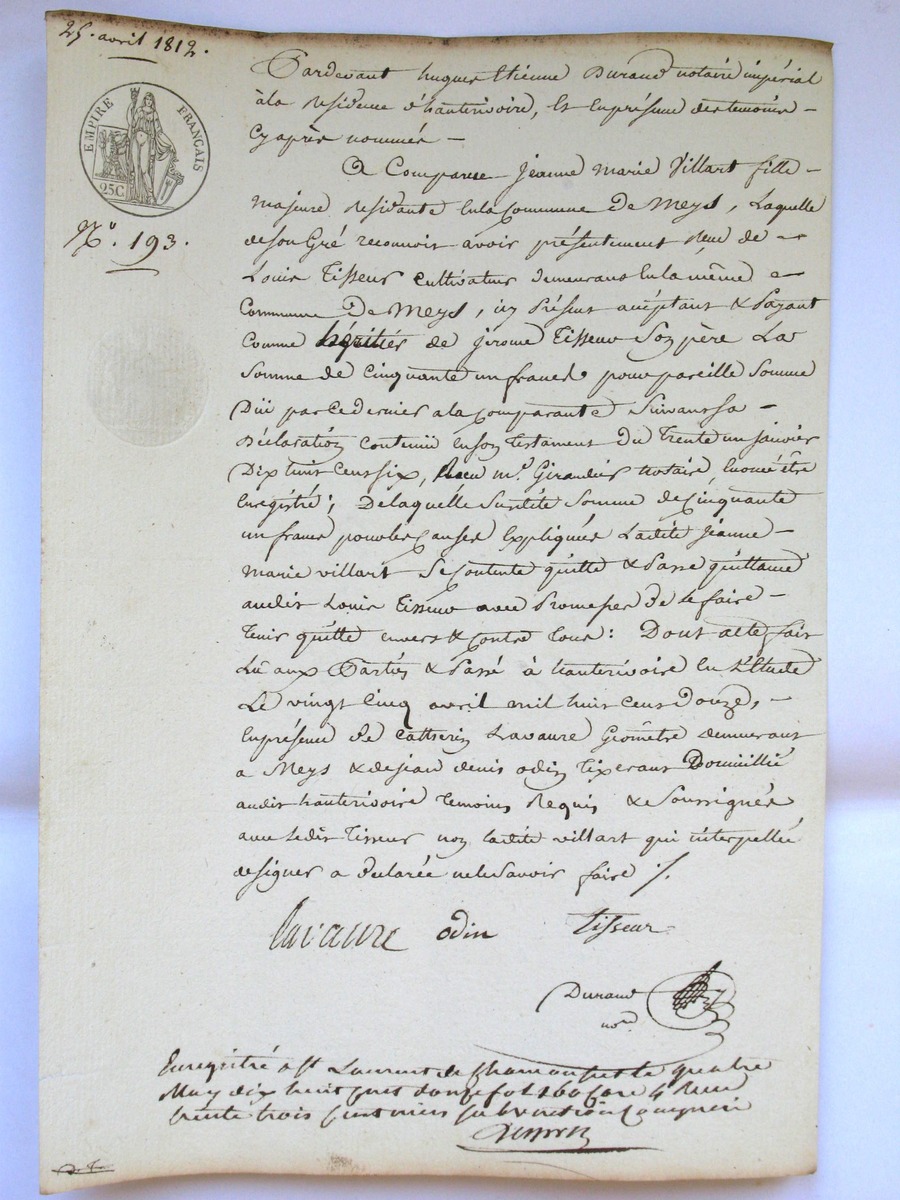 25. avril 1812.
EMPIRE FRANÇAIS
25 C.
N.º 193.
Pardevant hugues Etienne Durand notaire impérial
à la Residence d'hauterivoire, Et en présence des temoins
Cy après nommés
A Comparue Jeanne Marie Villart fille
majeure Residante En la Commune De Meys, Laquelle
de son Gré reconnoit avoir présentement Reçu de
Louis Tisseur cultivateur demeurant En la même
Commune De Meys, icy Présent acceptant & Payant
Comme héritier de jerome Tisseur Son père La
Somme de Cinquante un francs pour pareille Somme
Düe par ce dernier a la Comparante Suivant sa
Déclaration contenüe En son testament du trente un janvier
Dix huit Cent Six, Reçu M.e Girardier notaire
Enregistré; De laquelle Susdite Somme de Cinquante
un francs pour les Causes Expliquées Ladite Jeanne
Marie Villart Se Contente quitte & Passe quittance
audit Louis Tisseur avec Promesse De le faire
tenir quitte envers & contre tous: Dont acte fait
Lu aux Parties & Passé à hauterivoire En l'Etude
Le vingt Cinq avril mil huit Cent Douze,
En présence De Lavaure Géomètre demeurant
a Meys & de jean denis odin tixerant Domicillié
audit hauterivoire temoins Requis & Soussignés
avec Ledit Tisseur non ladite villart qui interpellée
de signer a Déclarée ne le Savoir faire ./.
Lavaure odin Tisseur
Durand
no.re
Enregistré a St Laurent de Chamousset le quatre
May dix huit cent douze fol 160 Case 4 Reçu
trente trois centimes subvention Comprise